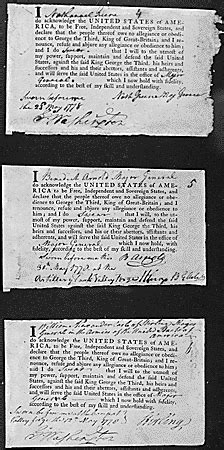 I Nathanael Greene 4
do acknowledge the UNITED STATES of AME-
RICA, to be Free, Independent and Sovereign States, and
declare that the people thereof owe no allegiance or obedi-
ence to George the Third, King of Great-Britain; and I re-
nounce, refuse and abjure any allegiance or obedience to
him; and I do Swear that I will to the ut-
most of my power, support, maintain and defend the said
United States, against the said King George the Third, his
heirs and successors and his and their abettors, assistants and
adherents, and will serve the said United States in the office of Major
General which I now hold with fidelity,
according to the best of my skill and understanding.
Sworn before me
the 23 May 1778 Nath Greene Maj General

I Benedict Arnold Major General 5
do acknowledge the UNITED STATES of AME-
RICA, to be Free, Independent and Sovereign States, and
declare that the people thereof owe no allegiance or obe-
dience to George the Third, King of Great-Britain; and I
renounce, refuse and abjure any allegiance or obedience to
him; and I do Swear that I will, to the ut-
most of my power, support, maintain and defend the said
United States against the said King George the Third, his
heirs and successors, and his and their abettors, assistants and
adherents, and will serve the said United States in the office of
Major General which I now hold, with
fidelity, according to the best of my skill and understanding.
Sworn before me this
30th May 1778 at the
Artillery Park Valley Forge
B Arnold

I William Alexander Earl of Stirling Major
6
do acknowledge the UNITED STATES of AME-
RICA, to be Free, Independent and Sovereign States, and
declare that the people thereof owe no allegiance or obe-
dience to George the Third, King of Great-Britain; and I re-
nounce, refuse and abjure any allegiance or obedience to
him; and I do Swear that I will to the utmost of
my power, support, maintain and defend the said United
States, against the said King George the Third, his heirs
and successors and his and their abettors, assistants and adherents,
and will serve the said United States in the office of Major
General which I now hold with fidelity, according to
the best of my skill and understanding.
Stirling
Valley Forge May 1778